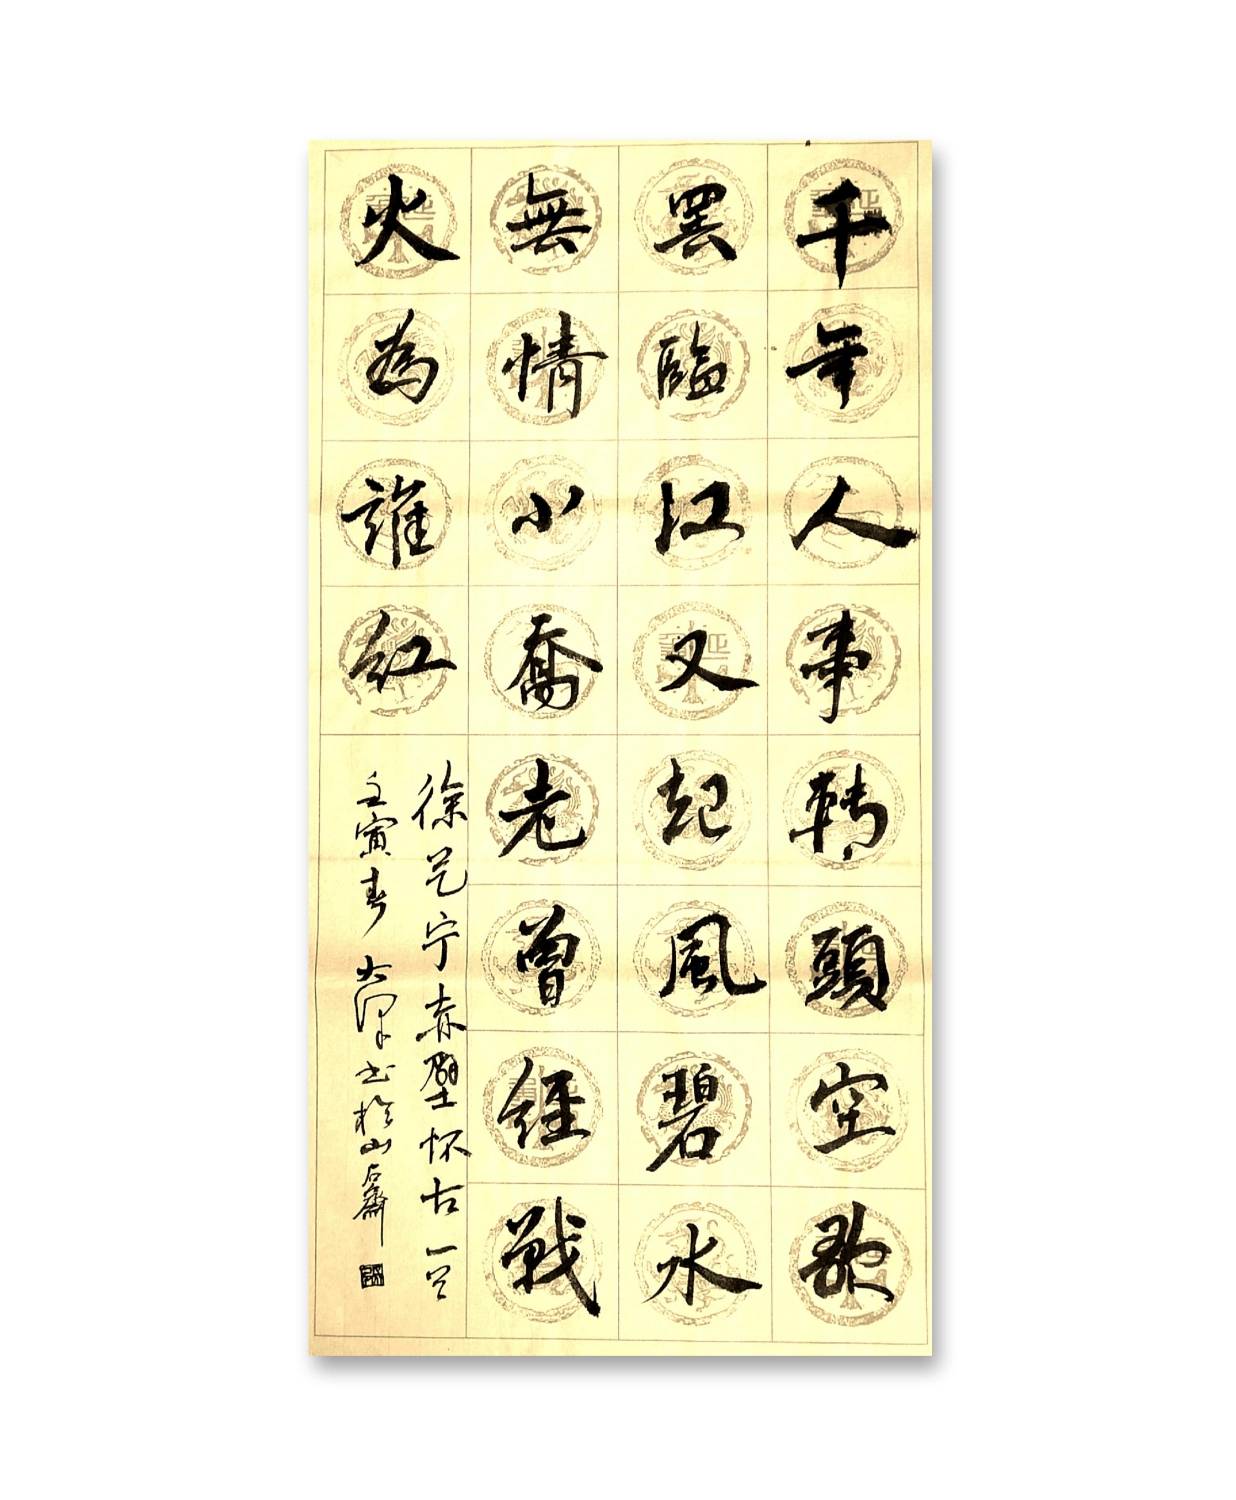 千年人事轉頭空歌
罢臨江又起風碧水
無情小喬老曾經戰
火為誰紅
徐艺宁赤壁怀古一首
壬寅春 大泽书於山石齋